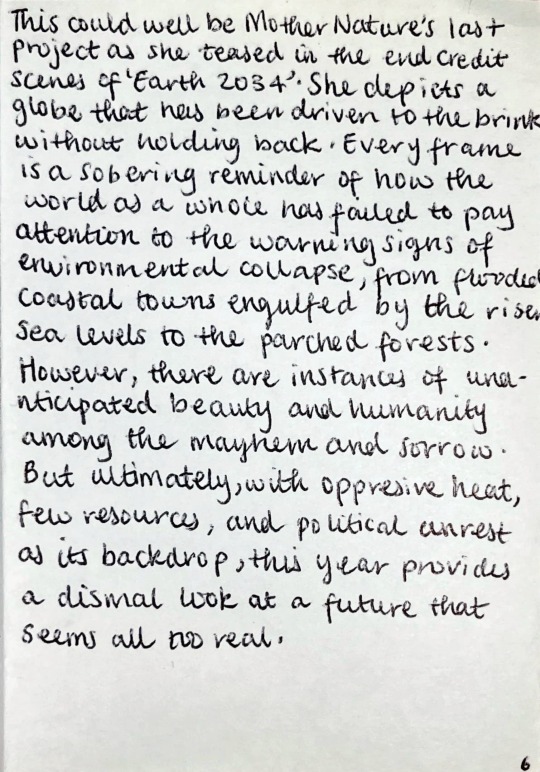 This could well be Mother Nature's last
project as she teased in the end credit
scenes of 'Earth 2034'. She depicts a
globe that has been driven to the brink
without holding back. Every frame
is a sobering reminder of how the
world as a whole has failed to pay
attention to the warning signs of
environmental collapse, from flooded
coastal towns engulfed by the risen
sea levels to the parched forests.
However, there are instances of una-
nticipated beauty and humanity
among the mayhem and sorrow.
But ultimately, with oppresive heat,
few resources, and political unrest
as its backdrop, this year provides
a dismal look at a future that
seems all too real.
6